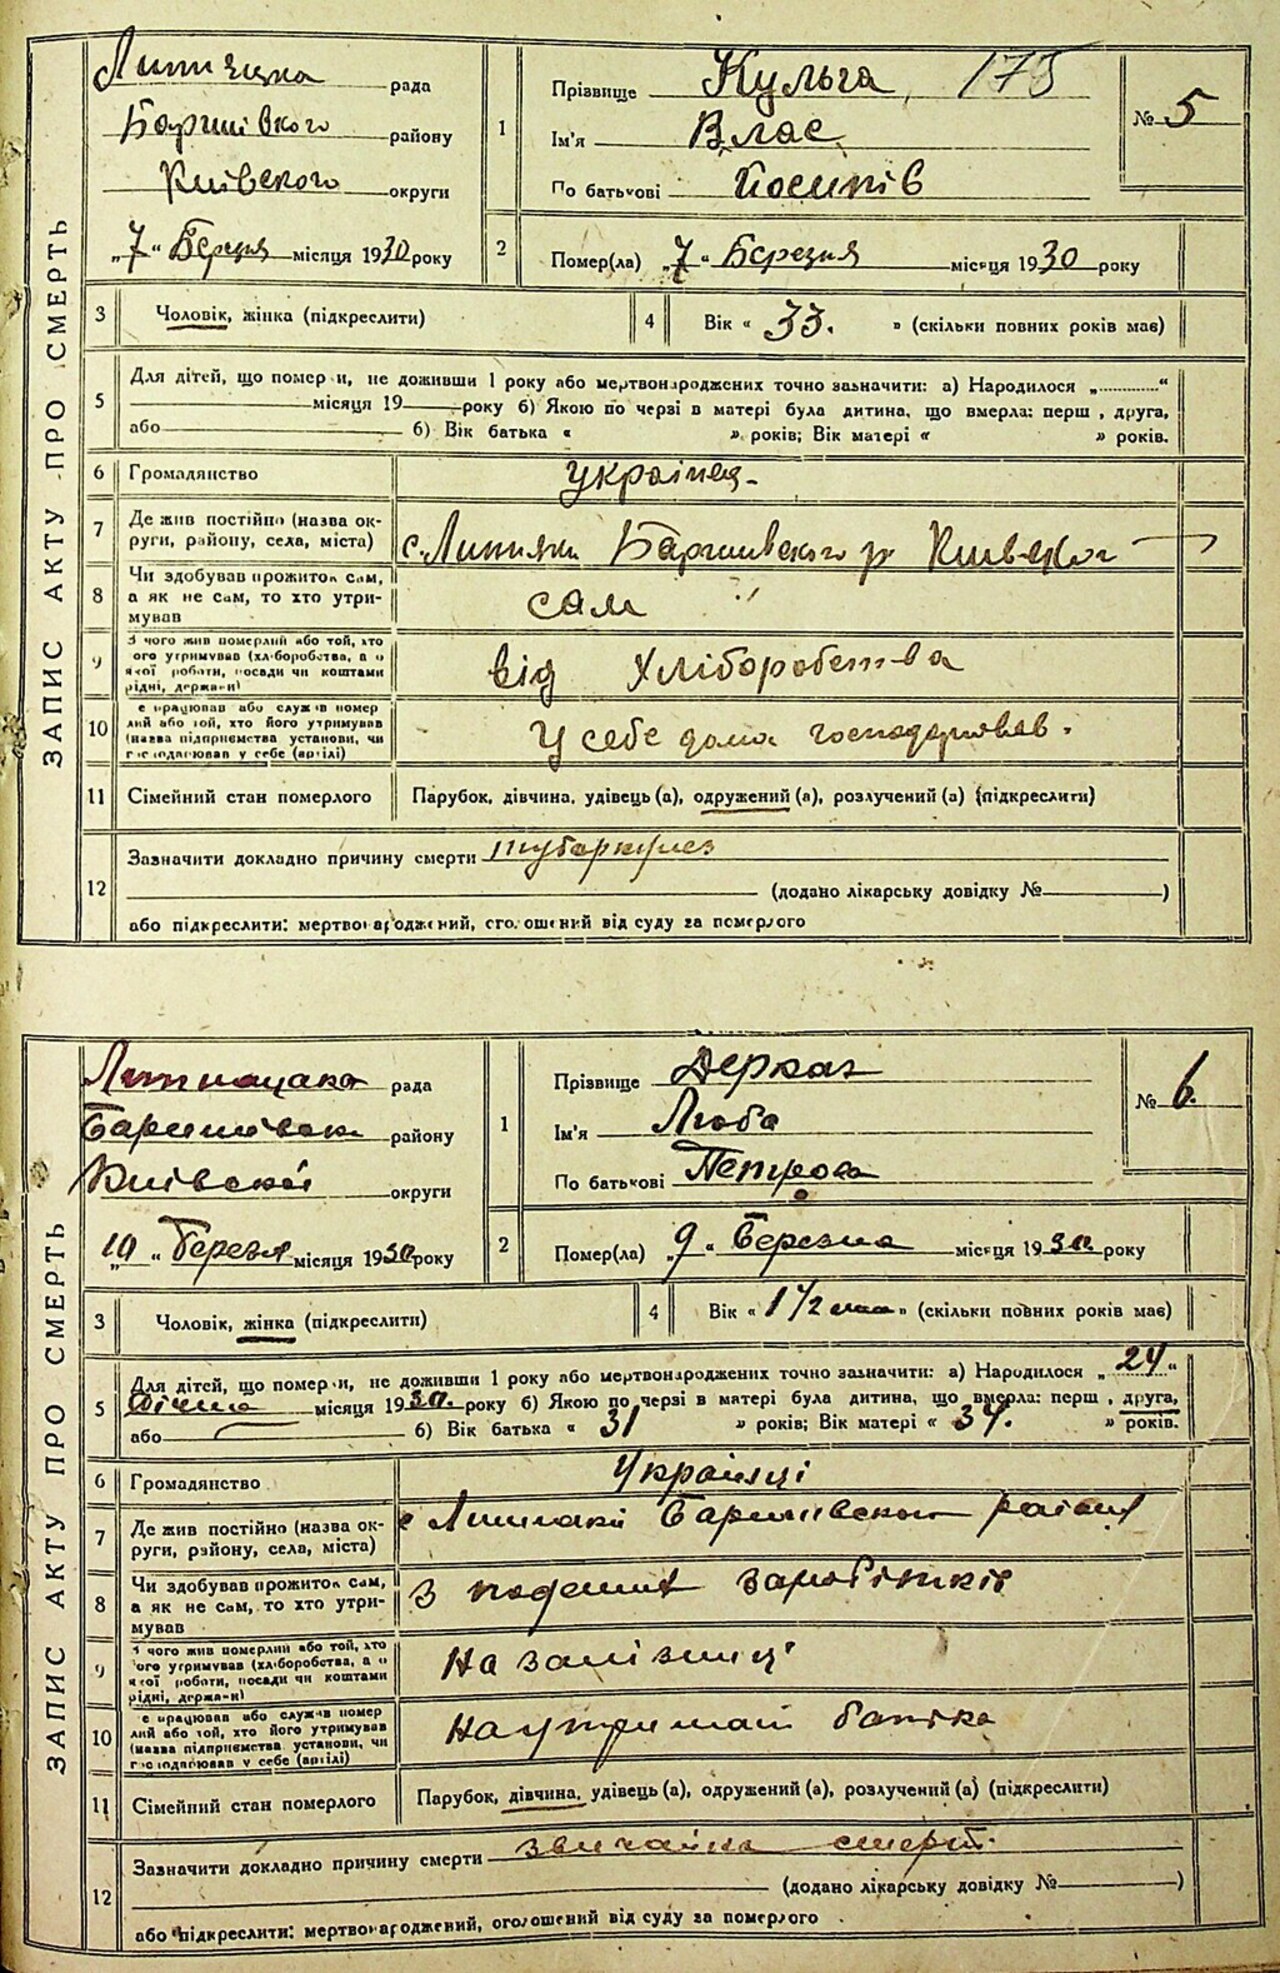 ЗАПИС АКТУ ПРО СМЕРТЬ
рада
Баришівского району
Київского округи
„7“ Березня місяця 1930 року
1
Прізвище Кульга, 175
Ім'я Влас
По батькові Йосипів
№ 5
2
Помер(ла) „7“ Березня місяця 1930 року
3 Чоловік, жінка (підкреслити)
4 Вік « 33. » (скільки повних років має)
5 Для дітей, що померли, не доживши 1 року або мертвонароджених точно зазначити: а) Народилося „ “
місяця 19 року б) Якою по черзі в матері була дитина, що вмерла: перш , друга,
або б) Вік батька « » років; Вік матері « » років.
6 Громадянство Українец-
7 Де жив постійно (назва округи, району, села, міста) с. Липняки Баришівского р
8 Чи здобував прожиток сам, а як не сам, то хто утримував сам
9 З чого жив померлий або той, хто його утримував (хліборобства, а о якої роботи, посади чи коштами рідні, держави) від Хліборобства
10 Де працював або служив померлий або той, хто його утримував (назва підприємства установи, чи господарював у себе (артілі) У себе дома господарював.
11 Сімейний стан померлого Парубок, дівчина, удівець (а), одружений (а), розлучений (а) (підкреслити)
12 Зазначити докладно причину смерти тубаркулез
(додано лікарську довідку № )
або підкреслити: мертвонароджений, оголошений від суду за померлого
ЗАПИС АКТУ ПРО СМЕРТЬ
рада
району
Київскої округи
„10“ Березня місяця 1930 року
1
Прізвище Деркач
Ім'я Люба
По батькові Петрова
№ 6.
2
Помер(ла) „9“ Березня місяця 1930 року
3 Чоловік, жінка (підкреслити)
4 Вік « 1 1/2 » (скільки повних років має)
5 Для дітей, що померли, не доживши 1 року або мертвонароджених точно зазначити: а) Народилося „24“
Січня місяця 1930 року б) Якою по черзі в матері була дитина, що вмерла: перш , друга,
або б) Вік батька « 31 » років; Вік матері « 34. » років.
6 Громадянство Українці
7 Де жив постійно (назва округи, району, села, міста) с Липняки Баришівского району
8 Чи здобував прожиток сам, а як не сам, то хто утримував З заробітків
9 З чого жив померлий або той, хто його утримував (хліборобства, а о якої роботи, посади чи коштами рідні, держави) На залізниці
10 Де працював або служив померлий або той, хто його утримував (назва підприємства установи, чи господарював у себе (артілі) На батька
11 Сімейний стан померлого Парубок, дівчина, удівець (а), одружений (а), розлучений (а) (підкреслити)
12 Зазначити докладно причину смерти звичайна смерть.
(додано лікарську довідку № )
або підкреслити: мертвонароджений, оголошений від суду за померлого